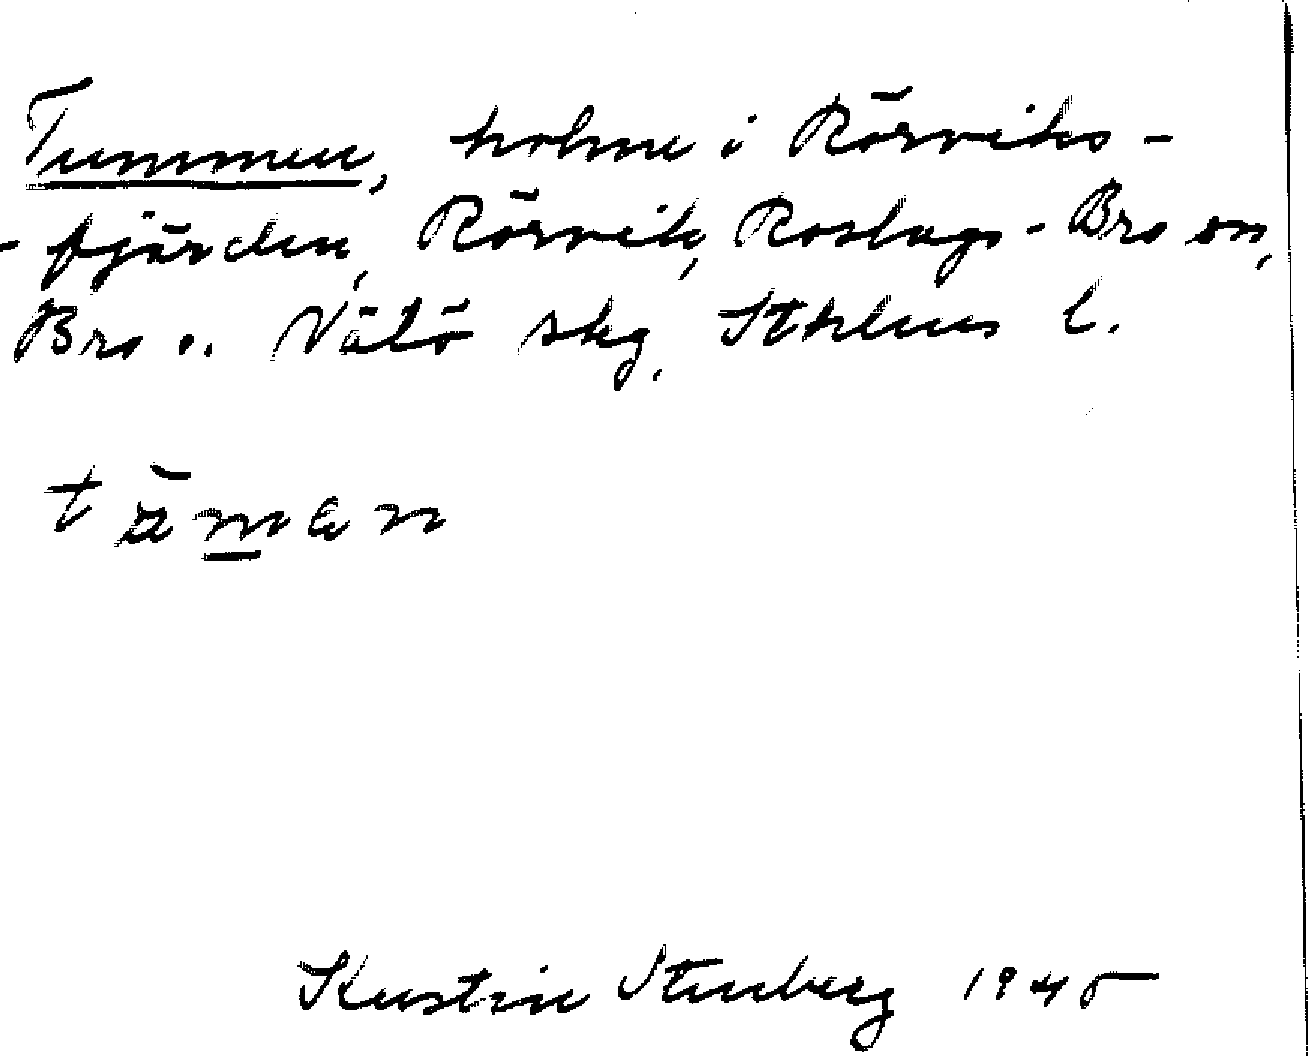 Tummen, holme i Rörviks-
-fjärden, Rörvik, Roslags-Bro sn,
Bro o. Vätö skg, Sthlms l.
Kerstin Stenberg 1945